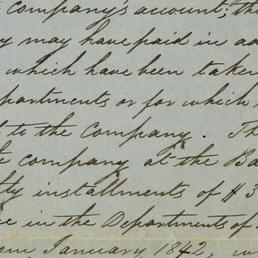 company's account; the
y may have paid in ad
which have been taken
partments or for which
to the Company. Th
e company at the Ba
ty installments of #3
ce in the Departments of
January 1842, w